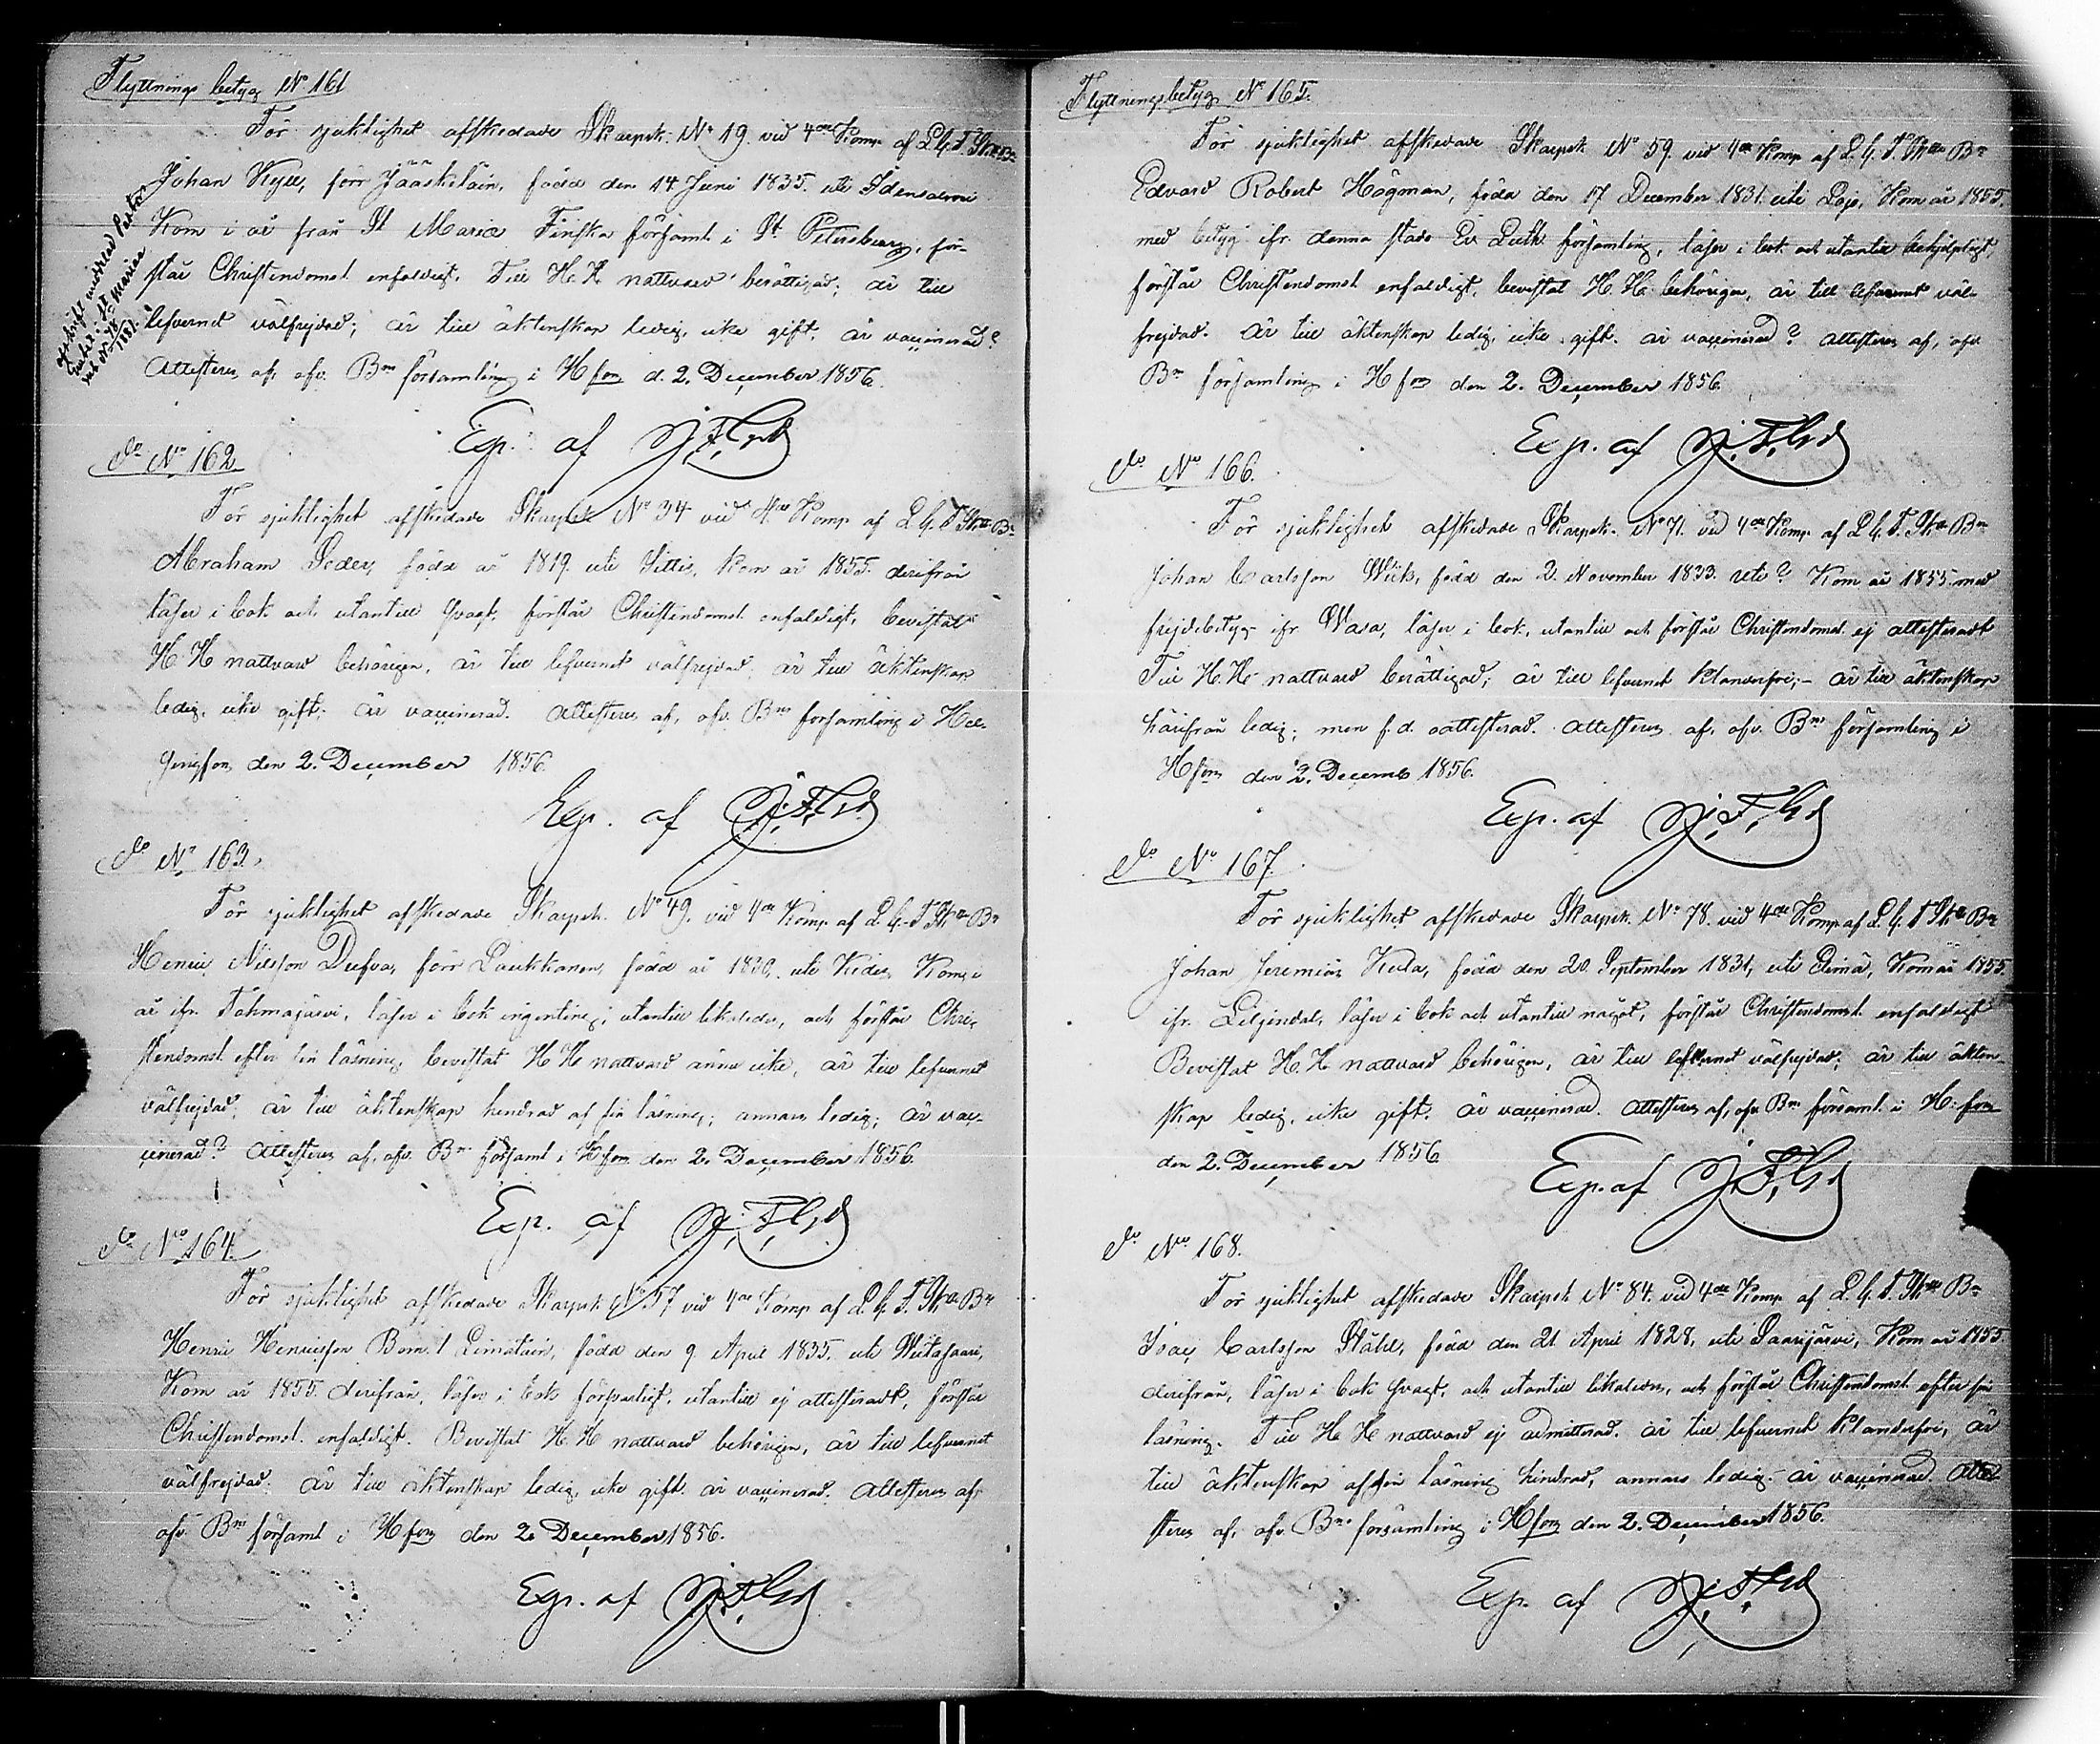 Flyttnings betyg No 161
För sjuklighet afskedade Skarpsk. No 19. vid 4de Komp. af L. G. F. Sk. Bn
Johan Kyll, förr Jääskeläin, född den 14 Juni 1835. uti Idensalmi
Kom i år från St Mariæ Finska församl. i St Petersburg, för-
står Christendomsl. enfaldigt. Till H. H. nattvard berättigad; är till
lefvernet välfrejdad; är till äktenskap ledig, icke gift. är vaccinerad?
Attesteras af, ofv. Bns församling i Hfors d. 2. December 1856.
Exp. af
afskrift meddelad
1881.
do No 162
För sjuklighet afskedade Skarpsk No 34 vid 4de Komp af L. G. F. Sk. Bn
Abraham Seder, född år 1819. uti Sittis, kom år 1855. derifrån
läser i bok och utantill svagt, förstår Christendomsl. enfaldigt, bevistat
H. H. nattvard behörigen, är till lefvernet välfrejdad; är till äktenskap
ledig, icke gift; är vaccinerad. Attesteras af, ofv. Bns församling i Hel-
singfors den 2. December 1856.
Exp. af
do No 163.
För sjuklighet afskedade Skarpsk. No 49. vid 4de Komp. af L. G. F. Sk. Bn
Henric Nilsson Dufva, förr Laukkanen, född år 1830, uti Kides, Kom i
år ifr. Tohmajärvi, läser i bok ingenting; utantill likaledes, och förstår Chri-
stendomsl. efter sin läsning, bevistat H. H. nattvard ännu icke, är till lefvernet
välfrejdad; är till äktenskap hindrad af sin läsning; annars ledig; är vac-
cinerad? Attesteras af, ofv. Bns församl. i Hfors den 2. December 1856.
Exp. af
do No 164.
För sjuklighet afskedade Skarpsk. No 57 vid 4de Komp af L. G. F. Sk. Bn
Henric Henricsson Bom. f. född den 9 April 1835. uti Wiitasaari,
Kom år 1855. derifrån, läser i bok försvarligt, utantill ej attesteradt, förstår
Christendomsl. enfaldigt. Bevistat H. H. nattvard behörigen, är till lefvernet
välfrejdad. är till äktenskap ledig, icke gift. är vaccinerad. Attesteras af,
ofv. Bns församl. i Hfors den 2. December, 1856.
Exp. af
Flyttningsbetyg No 165.
För sjuklighet afskedade Skarpsk. No 59. vid 4de Komp af L. G. F. Sk. Bn
Edvard Robert Högman, född den 17 December 1831. uti Lojo, Kom år 1855.
med betyg ifr. denna stads Ev. Luth. församling, läser i bok och utantill behjelpligt,
förstår Christendomsl. enfaldigt, bevistat H. H. behörigen, är till lefvernet väl-
frejdad. är till äktenskap ledig, icke gift. är vaccinerad? Attesteras af, ofv.
Bns församling i Hfors den 2. December 1856.
Exp. af
do No 166.
För sjuklighet afskedade Skarpsk. No 71. vid 4de Komp af L. G. F. Sk. Bn
Johan Carlsson Wiik, född den 2. November 1833. uti? Kom år 1855. med
frejdebetyg ifr. Wasa, läser i bok, utantill och förstår Christendomsl. ej attesteradt
Till H. H. nattvard berättigad; är till lefvernet klanderfri; – är till äktenskap
härifrån ledig; men f. d. oattesterad. Attesteras af, ofv. Bns församling i
Hfors den 2. Decemb 1856.
Exp. af
do No 167.
För sjuklighet afskedade Skarpsk. No 78. vid 4de Komp. af L. G. F. Sk. Bn
Johan Jeremias Kula, född den 20. September 1831, uti Elimä, Kom år 1855.
ifr. Liljendal, läser i bok och utantill något, förstår Christendomsl. enfaldigt
Bevistat H. H. nattvard behörigen, är till lefvernet välfrejdad; är till äkten-
skap ledig, icke gift. är vaccinerad. Attesteras af, ofv. Bns församl. i H:fors
den 2. December 1856
Exp. af
do No 168.
För sjuklighet afskedade Skarpsk No 84. vid 4de Komp af L. G. F. Sk. Bn
Isac Carlsson Ståhl, född den 21 April 1828, uti Saarijärvi, Kom år 1855
derifrån, läser i bok svagt, och utantill likaledes, och förstår Christendomsl. efter sin
läsning. Till H. H. nattvard ej admitterad. är till lefvernet klanderfri, är
till äktenskap af sin läsning hindrad, annars ledig. – är vaccinerad. Atte-
steras af, ofv. Bns församling i Hfors den 2. December 1856.
Exp. af